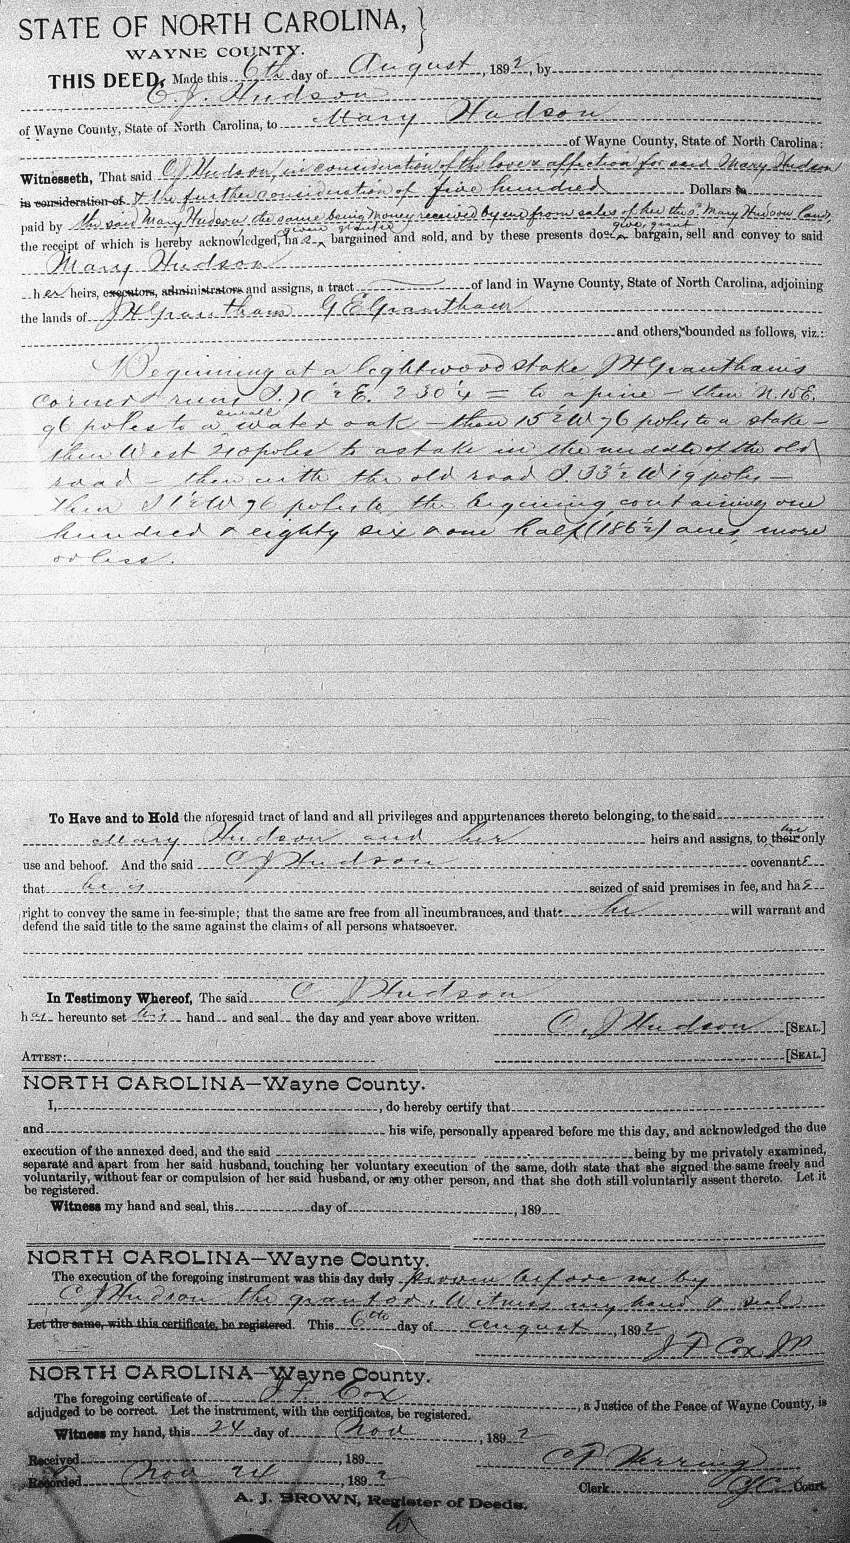 STATE OF NORTH CAROLINA, }
WAYNE COUNTY.
THIS DEED, Made this 6th day of August, 1892, by
C. J. Hudson
of Wayne County, State of North Carolina, to Mary Hudson
of Wayne County, State of North Carolina:
Witnesseth, That said C J Hudson, in consideration of the love & affection for said Mary Hudson
in consideration of & the further consideration of five hundred Dollars to
paid by the said Mary Hudson, the same being money received by me from sales of her the sd Mary Hudson land,
given grantd
the receipt of which is hereby acknowledged, has bargained and sold, and by these presents does give, grant bargain, sell and convey to said
Mary Hudson
her heirs, executors, administrators and assigns, a tract of land in Wayne County, State of North Carolina, adjoining
the lands of J H Grantham G E Grantham
and others, bounded as follows, viz.:
Beginning at a lightwood stake J H Grantham's
corner & runs S. 70 ½ E. 230 ¼ = to a pine - then N. 15 E.
96 poles to a small water oak - then 15 ½ W 76 poles to a stake -
then West 240 poles to a stake in the middle of the old
road - then with the old road S. 33 ½ W 19 poles -
then S 1 ½ W 76 poles to the begining, containing one
hundred & eighty six & one half (186 ½) acres, more
or less.
To Have and to Hold the aforesaid tract of land and all privileges and appurtenances thereto belonging, to the said
Mary Hudson and her heirs and assigns, to their her only
use and behoof. And the said C J Hudson covenants
that he is seized of said premises in fee, and has
right to convey the same in fee-simple; that the same are free from all incumbrances, and that he will warrant and
defend the said title to the same against the claims of all persons whatsoever.
In Testimony Whereof, The said C J Hudson
has hereunto set his hand and seal the day and year above written.
C. J Hudson [SEAL.]
ATTEST: [SEAL.]
NORTH CAROLINA—Wayne County.
I, , do hereby certify that
and his wife, personally appeared before me this day, and acknowledged the due
execution of the annexed deed, and the said being by me privately examined,
separate and apart from her said husband, touching her voluntary execution of the same, doth state that she signed the same freely and
voluntarily, without fear or compulsion of her said husband, or any other person, and that she doth still voluntarily assent thereto. Let it
be registered.
Witness my hand and seal, this day of , 189
NORTH CAROLINA—Wayne County.
The execution of the foregoing instrument was this day duly proven before me by
C J Hudson the grantor. Witness my hand & seal
Let the same, with this certificate, be registered. This 6th day of August, 1892
J F Cox JP
NORTH CAROLINA—Wayne County.
The foregoing certificate of J. F. Cox, a Justice of the Peace of Wayne County, is
adjudged to be correct. Let the instrument, with the certificates, be registered.
Witness my hand, this 24 day of Nov, 1892
Received , 189 C F Herring
Recorded Nov 24, 1892 Clerk Court
A. J. BROWN, Register of Deeds.